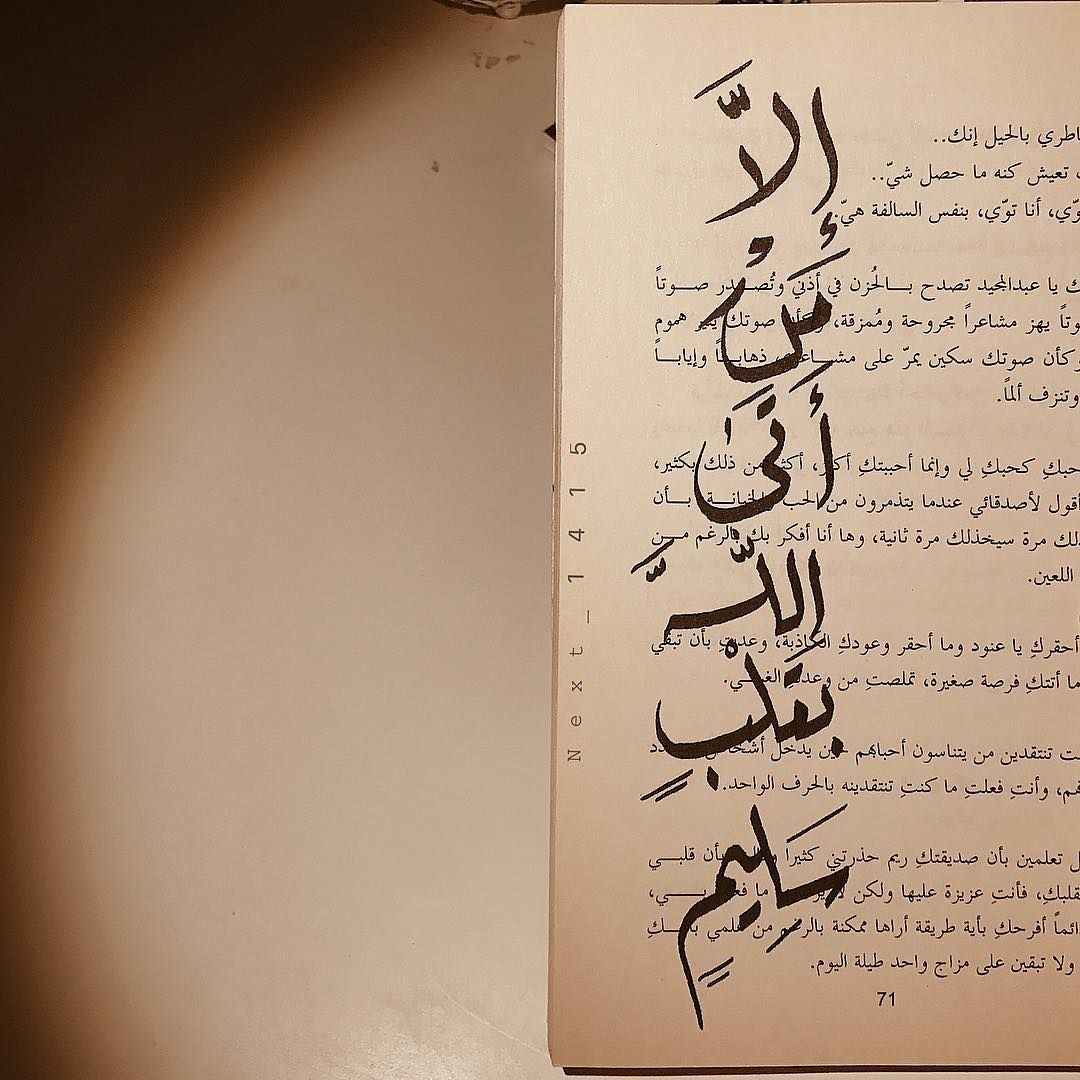 إلَّا
مَنْ
أَتَى
اللَّهَ
بِقَلْبٍ
سَلِيمٍ
Next_1415
بالحيل إنك..
تعيش كنه ما حصل شيّ..
أنا توّي، بنفس السالفة هيّ.
يا عبدالمجيد تصدح بـــالحُزن في أذني وتُصـــدر صـــوتاً
يهز مشاعراً مجروحة ومُمزقة، وكأن صوتك ينثر هموم
وكأن صوتك سكين يمرّ على مشـــاعري ذهابـــاً وإيابـــاً
وتنزف ألماً.
كحبكِ لي وإنما أحببتكِ أكثر، أكثر من ذلك بكثير،
أقول لأصدقائي عندما يتذمرون من الحب والخيانـــة بـــأن
مرة سيخذلك مرة ثانية، وها أنا أفكر بك بالرغم مـــن
اللعين.
أحقركِ يا عنود وما أحقر وعودكِ الكاذبة، وعدتِ بأن تبقي
أتتكِ فرصة صغيرة، تملصتِ من وعدكِ الغبـــي.
تنتقدين من يتناسون أحبابهم حين يدخل أشخاص
وأنتِ فعلتِ ما كنتِ تنتقدينه بالحرف الواحد.
تعلمين بأن صديقتكِ ريم حذرتني كثيرا بأن قلبـــي
فأنتِ عزيزة عليها ولكن ما بـــي،
أفرحكِ بأية طريقة أراها ممكنة بالرغم من علمي بأنـــكِ
ولا تبقين على مزاج واحد طيلة اليوم.
71